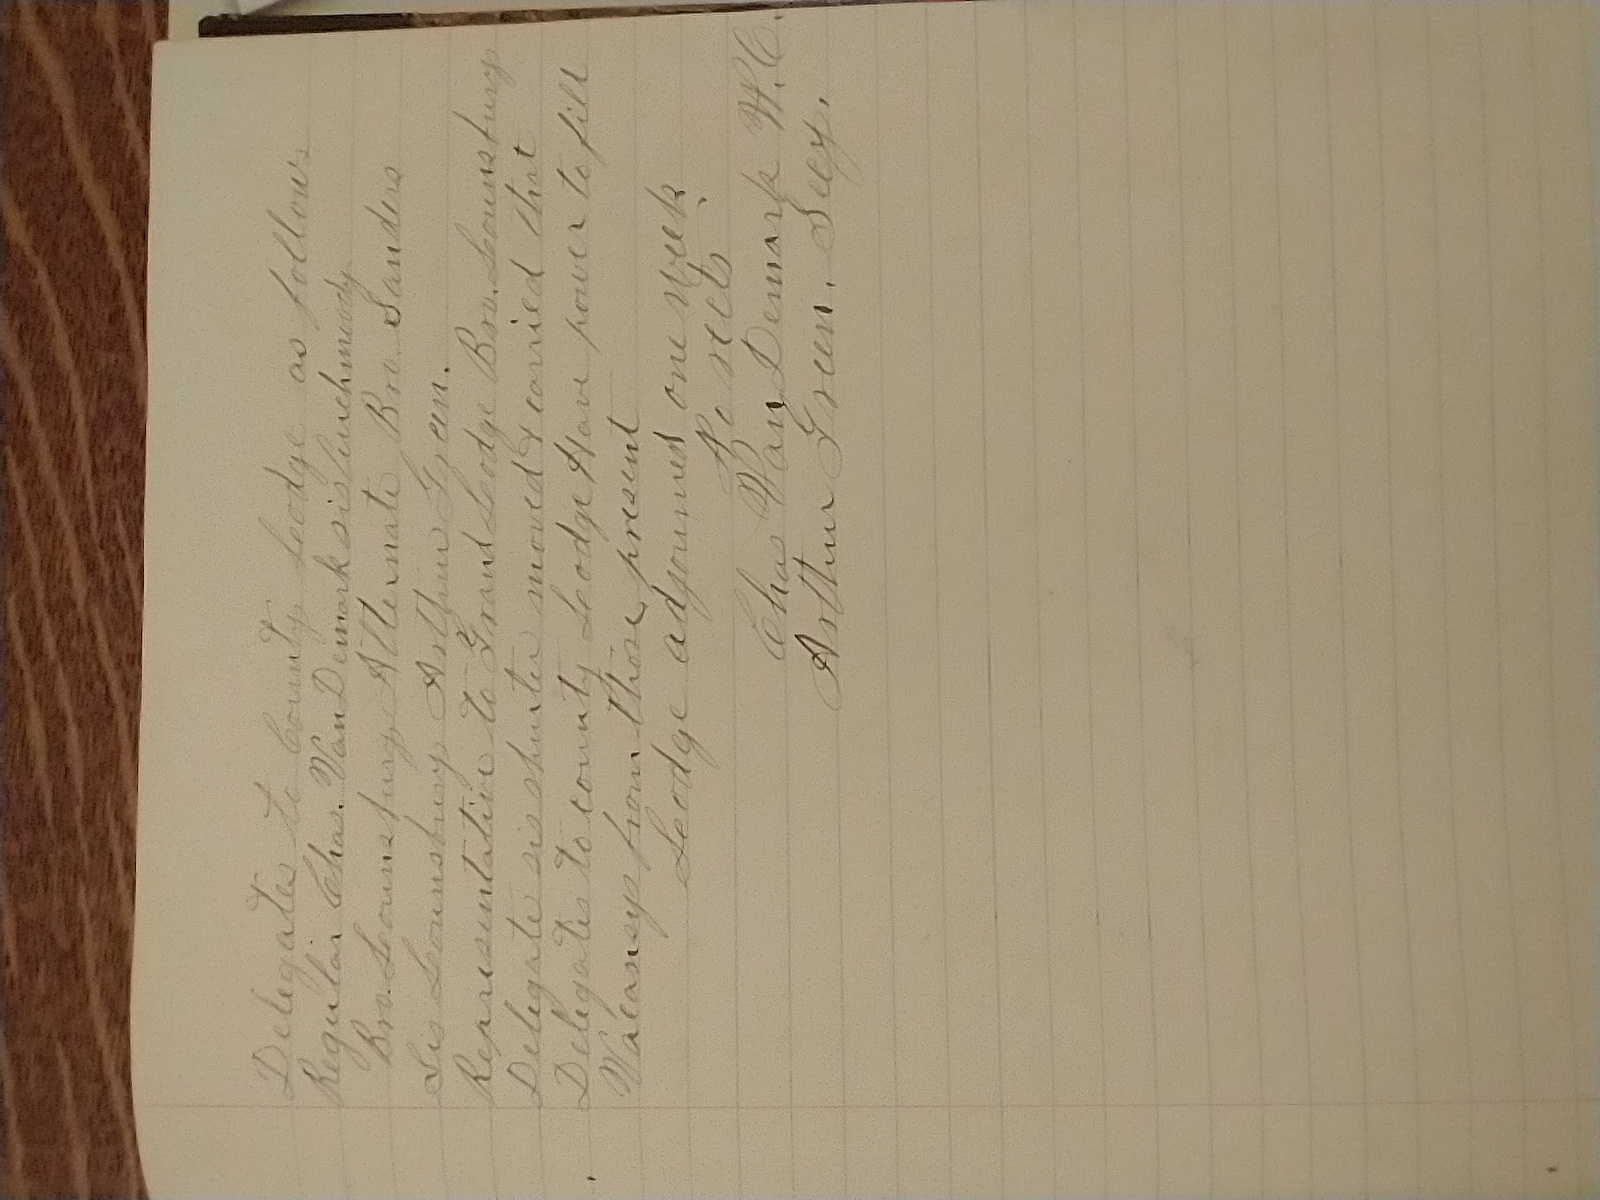 Delegates to County Lodge as follows
Regular Chas. VanDemark sis Cuchmoody
Bro. Lounsbury Alternate Bro. Sanders
Sis Lounsbury Arthur Green.
Representative to Grand Lodge Bro. Lounsbury
Delegate sis shurter moved & carried that
Delegates to county Lodge Have power to fill
Vacansys from those present
Lodge adjourned one week
No rects
Chas Van Demark W.C.
Arthur Green. Secy.